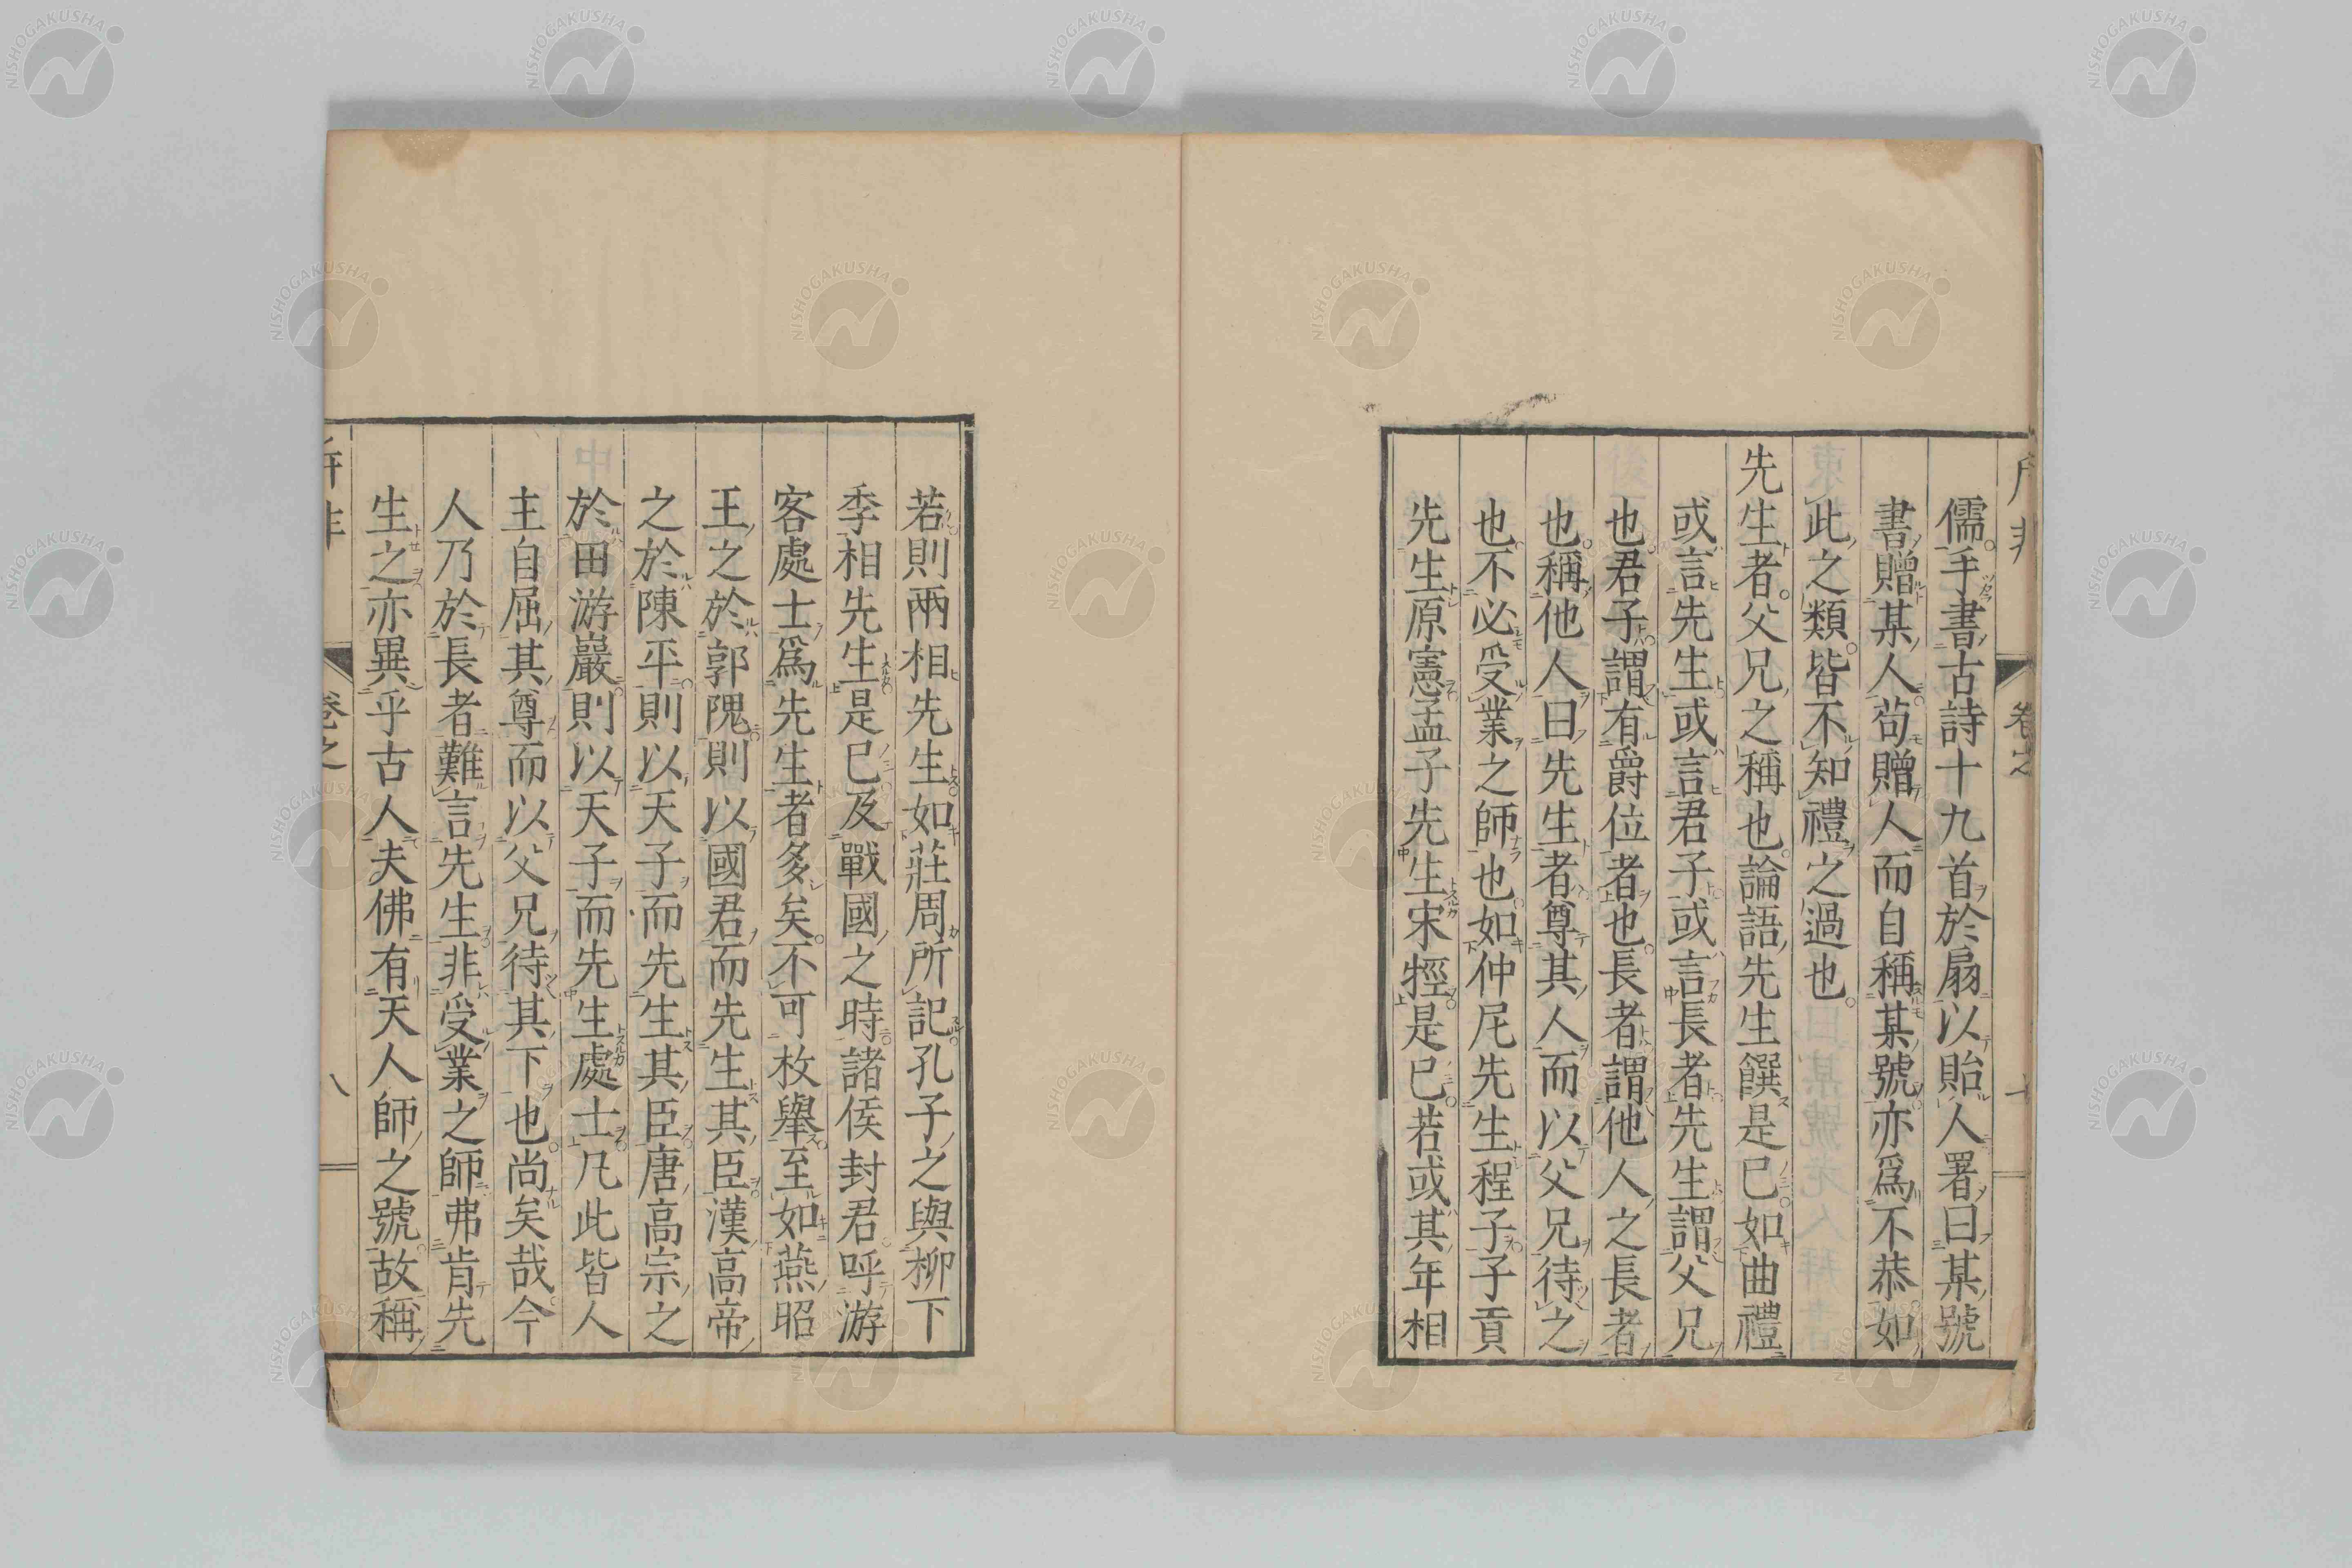 儒手書古詩十九首於扇以貽人署曰某號
書贈某人苟贈人而自稱某號亦爲不恭如
此之類皆不知禮之過也
先生者父兄之稱也論語先生饌是已如曲禮
或言先生或言君子或言長者先生謂父兄
也君子謂有爵位者也長者謂他人之長者
也稱他人曰先生者尊其人而以父兄待之
也不必受業之師也如仲尼先生程子子貢
先生原憲孟子先生宋牼是已若或其年相
若則兩相先生如莊周所記孔子之與柳下
季相先生是已及戰國之時諸侯封君呼游
客處士爲先生者多矣不可枚擧至如燕昭
王之於郭隗則以國君而先生其臣漢高帝
之於陳平則以天子而先生其臣唐高宗之
於田游巖則以天子而先生處士凡此皆人
主自屈其尊而以父兄待其下也尚矣哉今
人乃於長者難言先生非受業之師弗肯先
生之亦異乎古人夫佛有天人師之號故稱
卷之
八
NISHOGAKUSHA